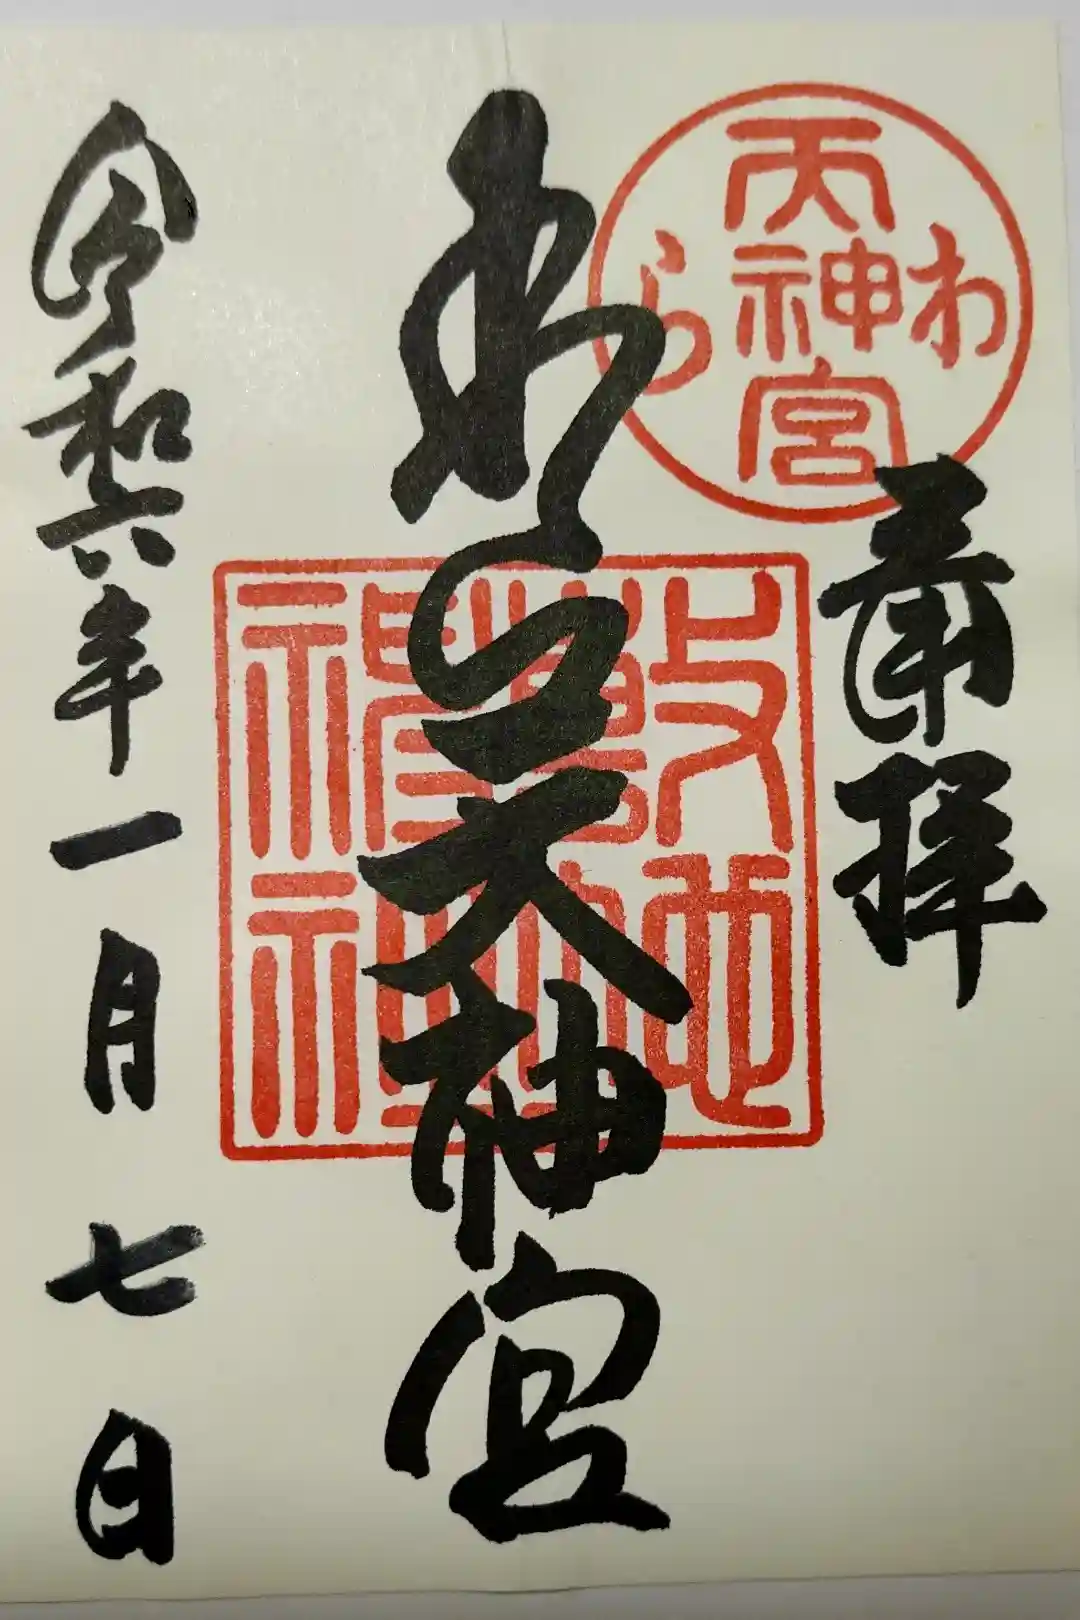 奉拝
わら
天神宮
わら天神宮
敷地
令和六年一月七日